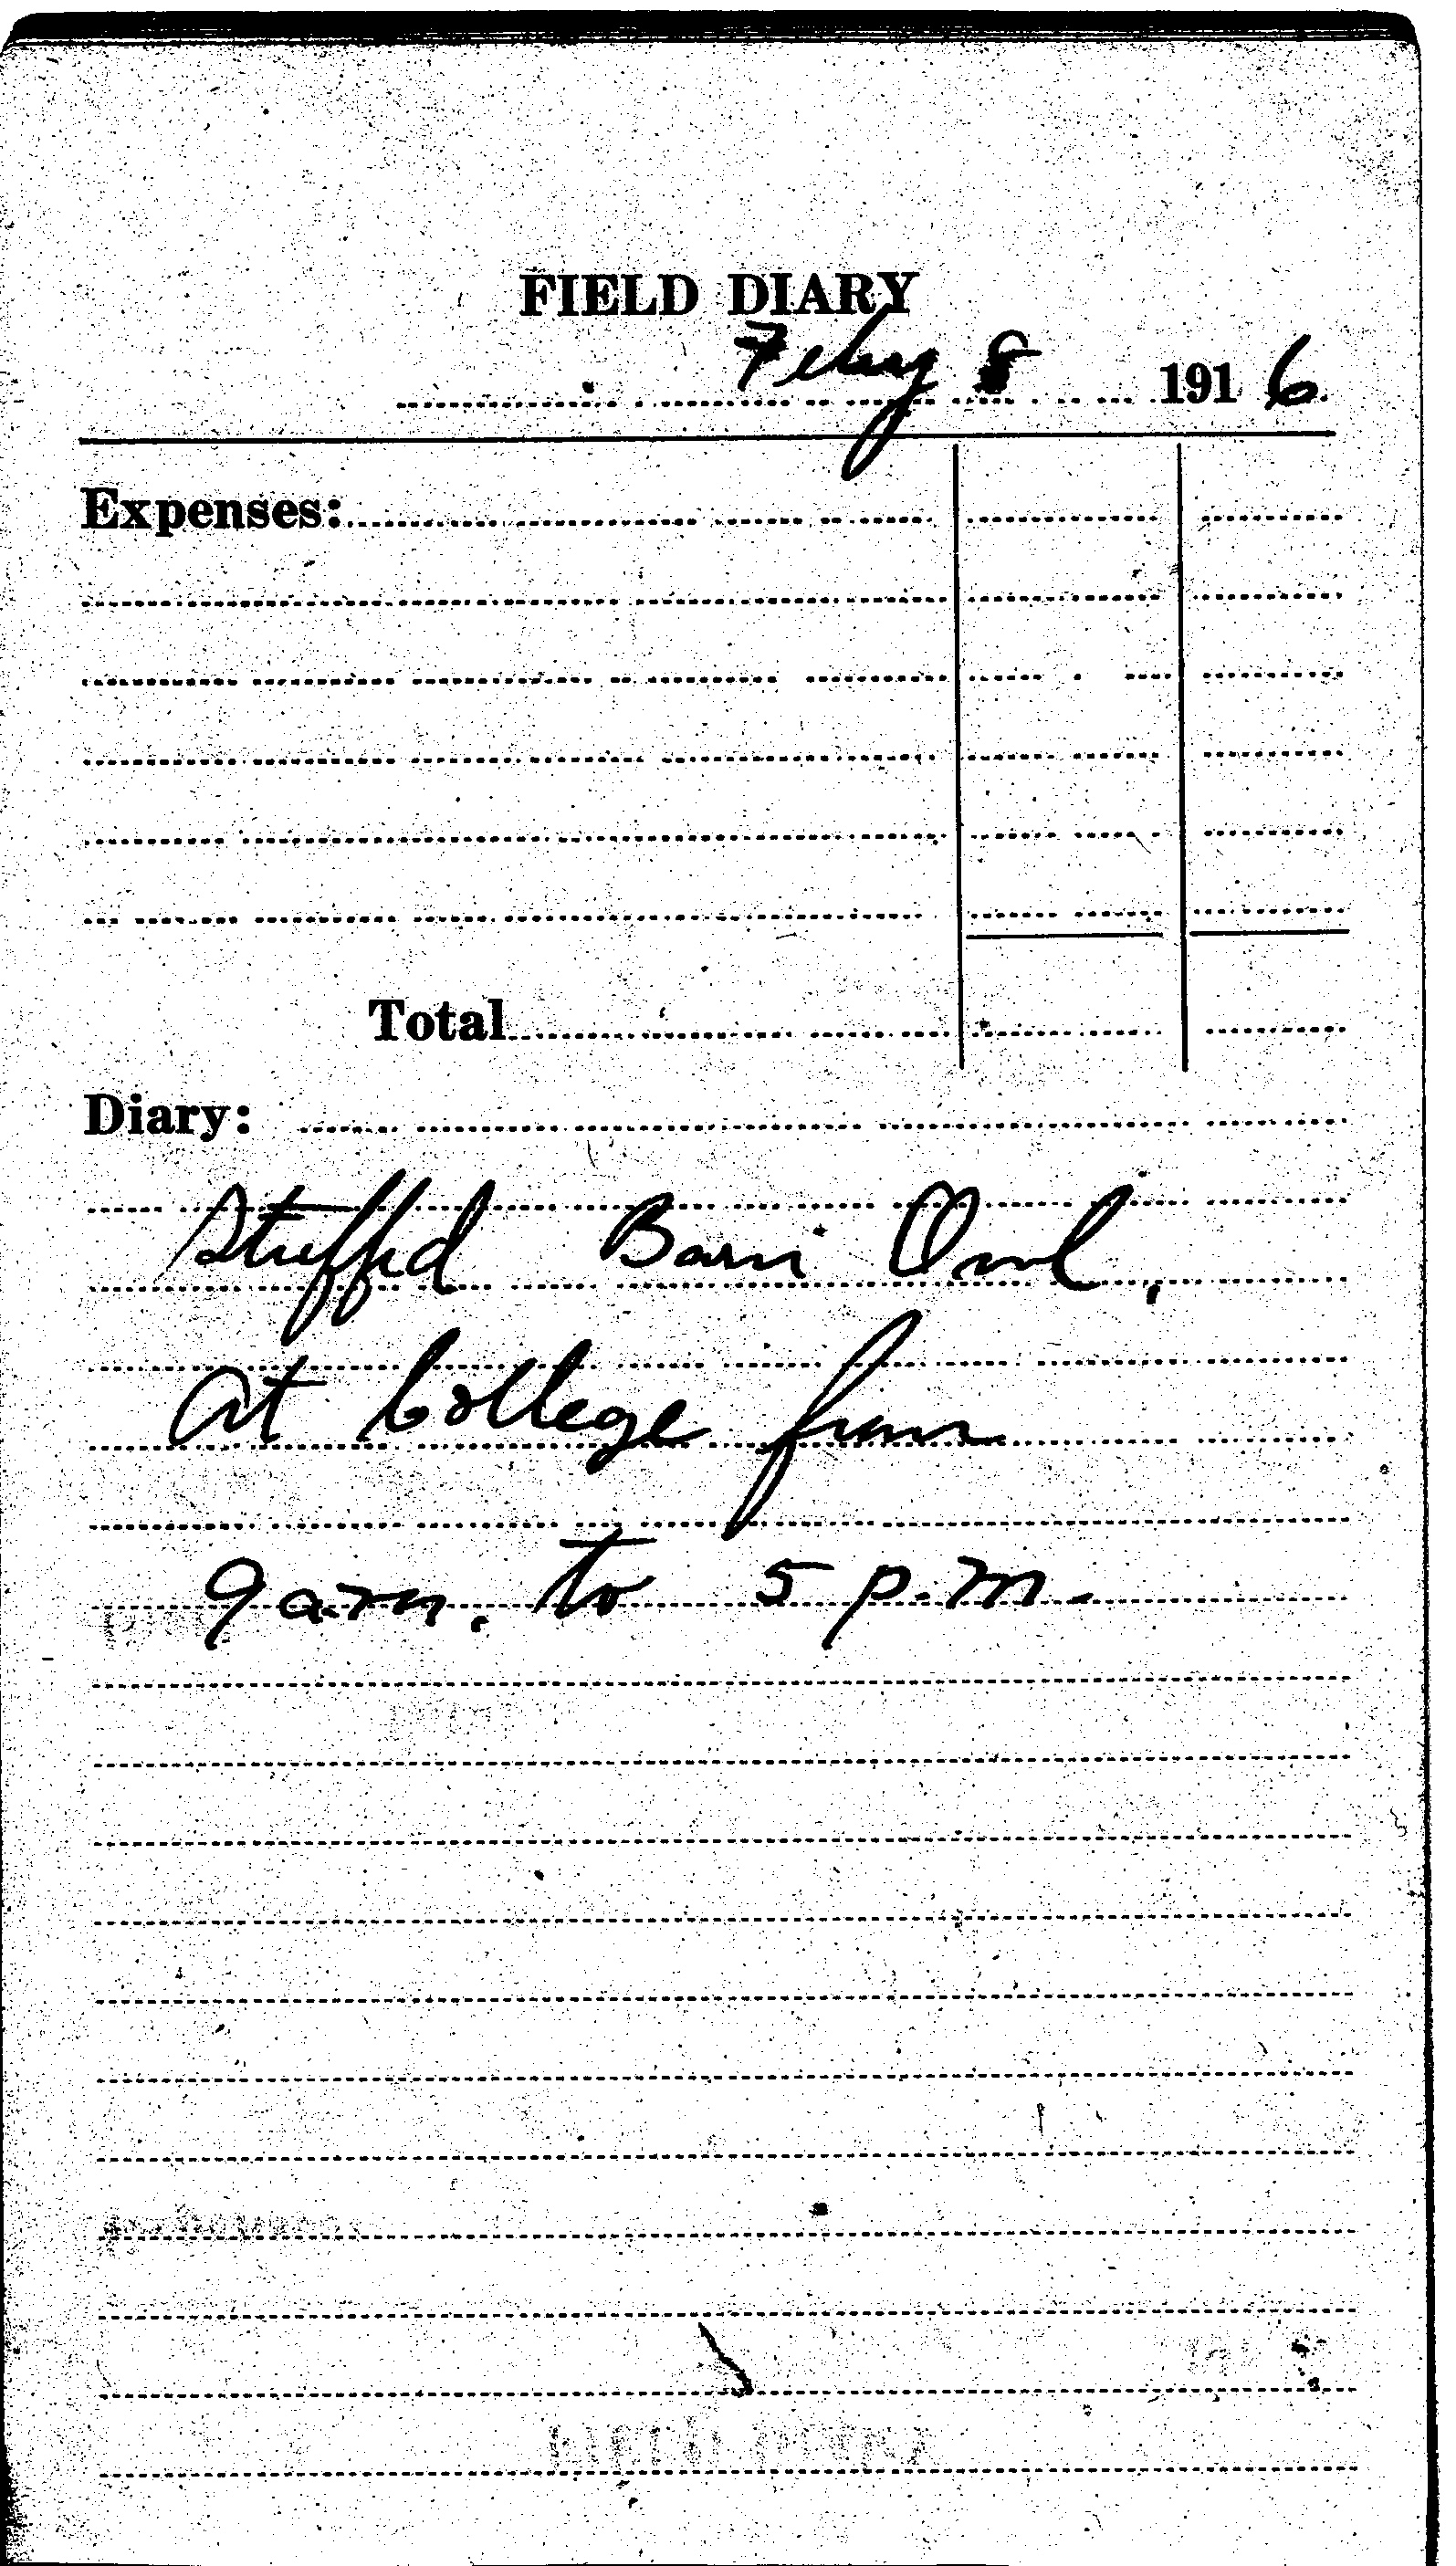 FIELD DIARY
Feby 8 1916
Expenses:
Total
Diary:
Stuffed Barn Owl.
At College from
9 a.m. to 5 p.m.